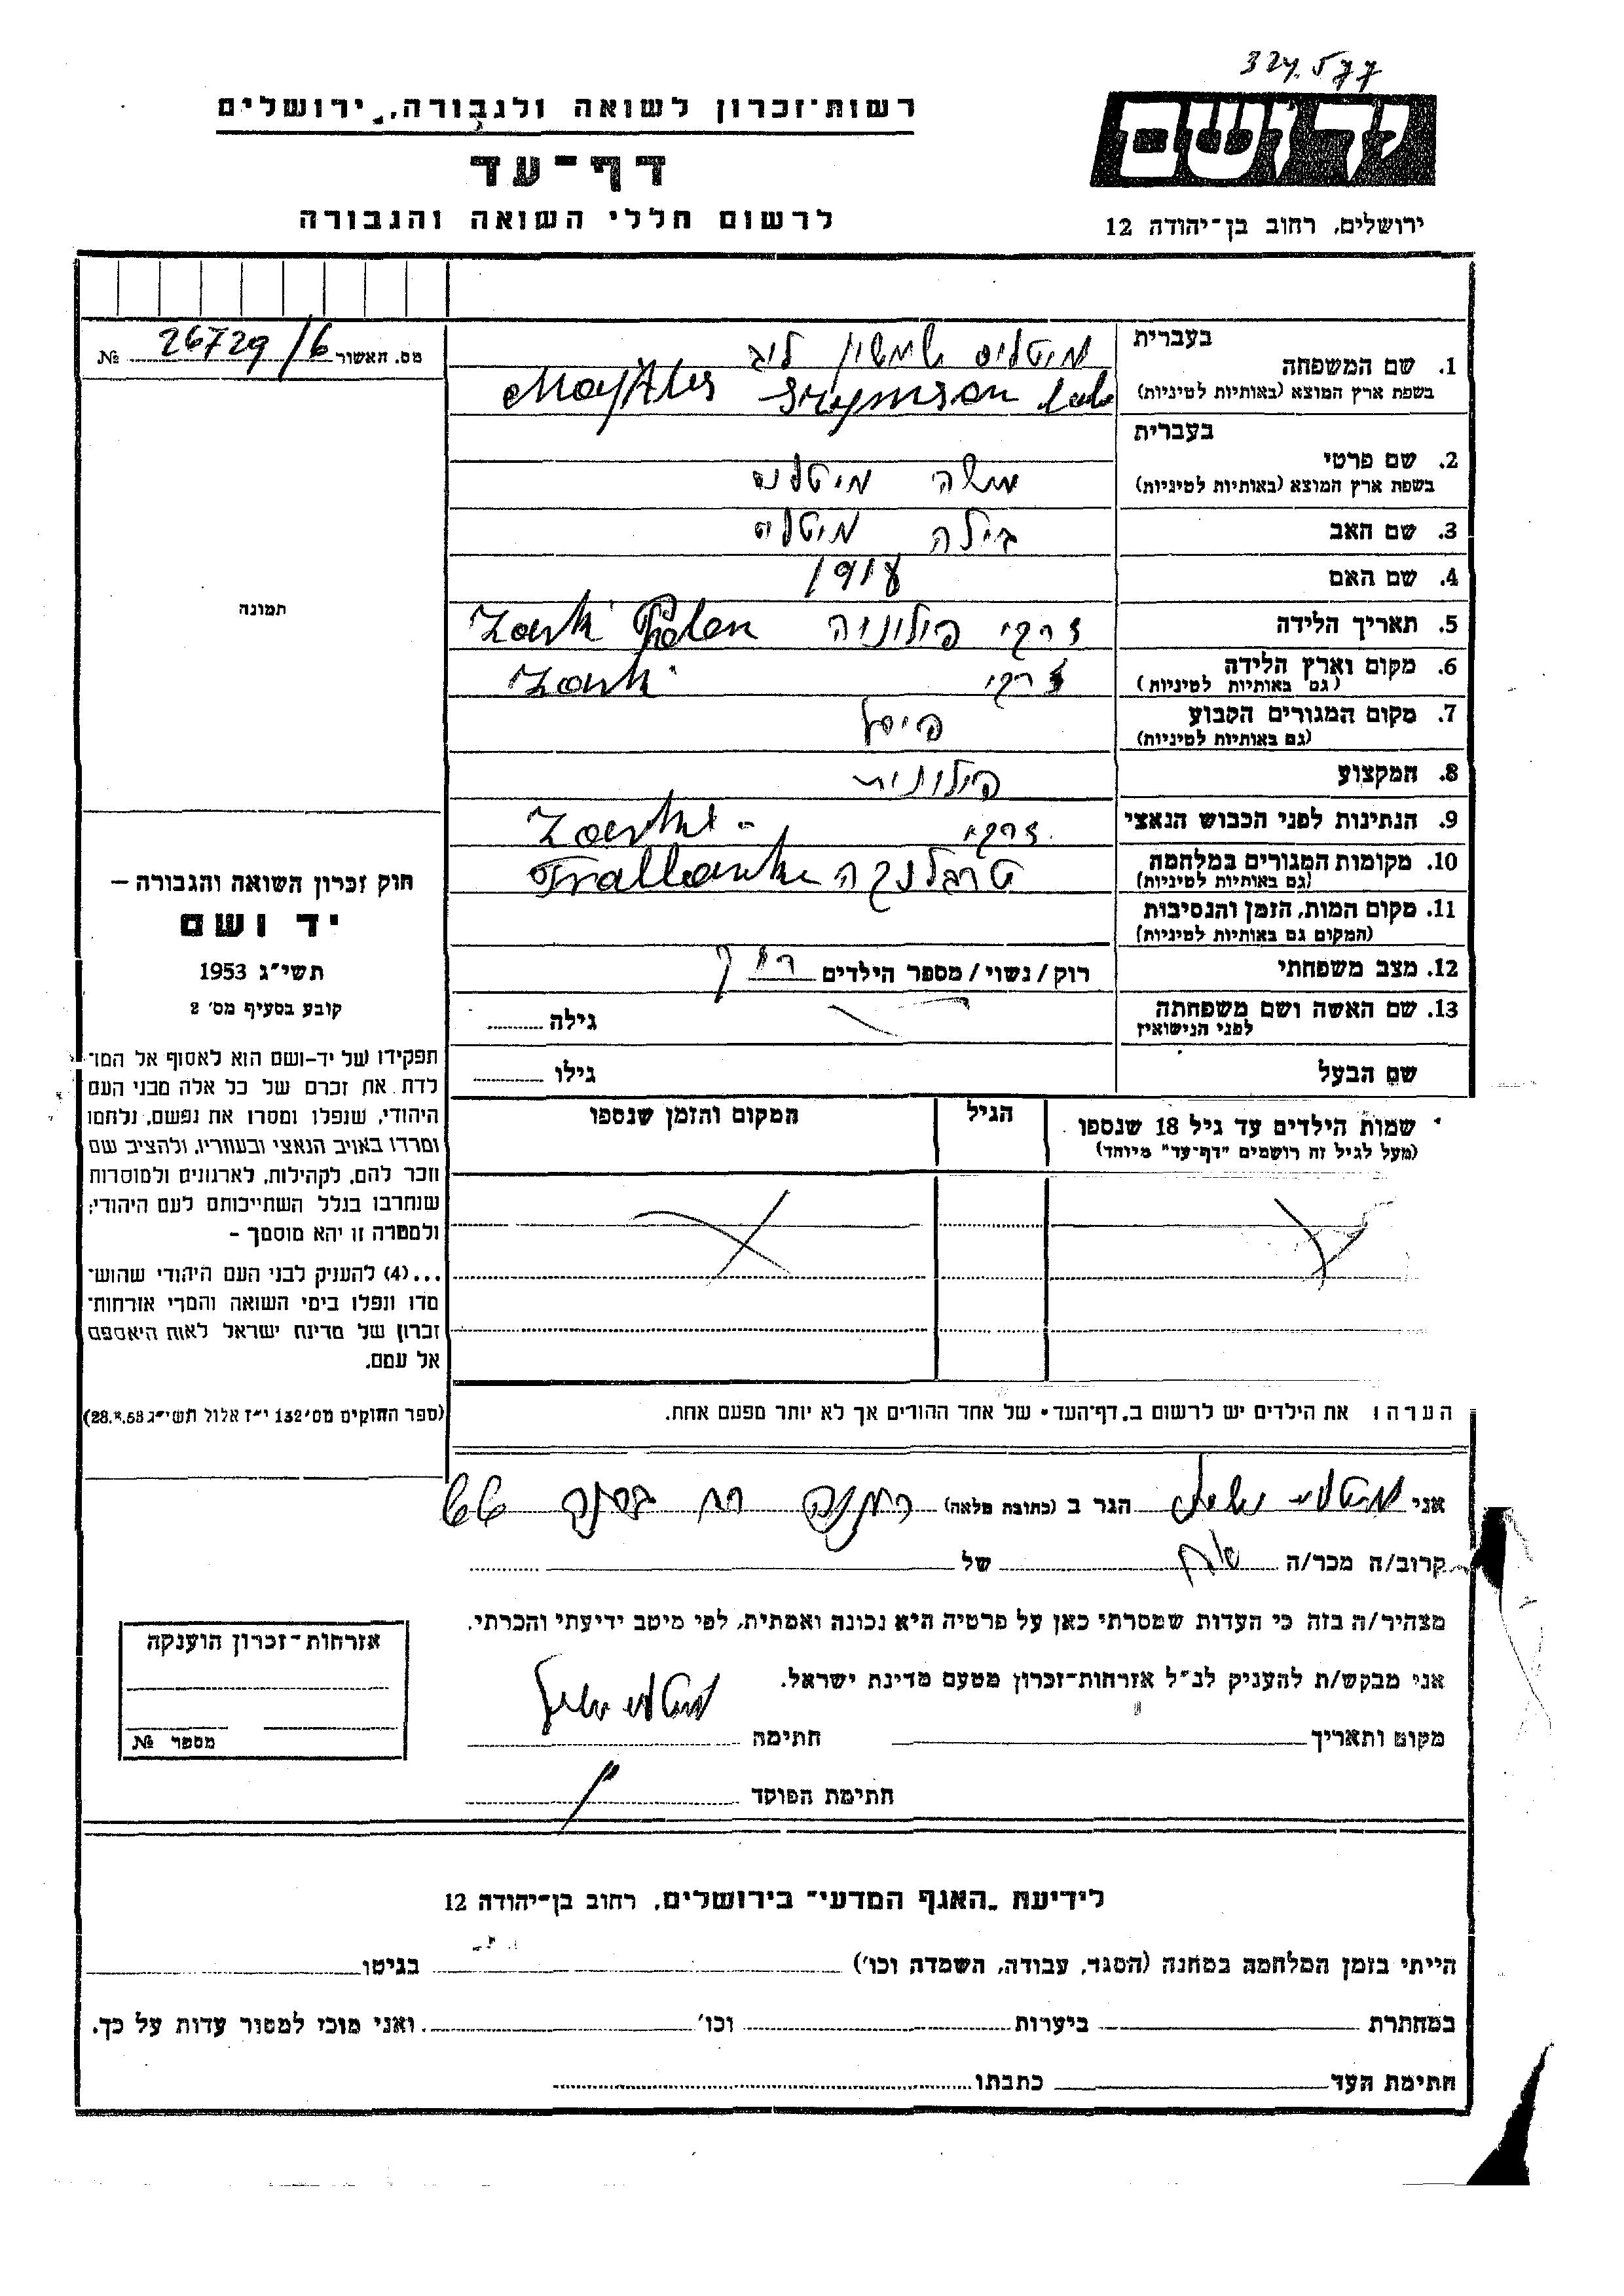 324.577
יד ושם
ירושלים, רחוב בן־יהודה 12
רשות־זכרון לשואה ולגבורה, ירושלים
דף־עד
לרשום חללי השואה והגבורה
מס. האשור 26729/6 №
תמונה
חוק זכרון השואה והגבורה –
יד ושם
תשי״ג 1953
קובע בסעיף מס׳ 2
תפקידו של יד-ושם הוא לאסוף אל המו־
לדת את זכרם של כל אלה מבני העם
היהודי, שנפלו ומסרו את נפשם, נלחמו
ומרדו באויב הנאצי ובעוזריו, ולהציב שם
וזכר להם, לקהילות, לארגונים ולמוסדות
שנחרבו בגלל השתייכותם לעם היהודי;
ולמטרה זו יהא מוסמך –
...(4) להעניק לבני העם היהודי שהוש־
מדו ונפלו בימי השואה והמרי אזרחות־
זכרון של מדינת ישראל לאות היאספם
אל עמם.
(ספר החוקים מס׳ 132 י״ז אלול תשי״ג 28.8.53)
בעברית
1. שם המשפחה מיטליס שמשון לייב
בשפת ארץ המוצא (באותיות לטיניות) Szymson
בעברית
2. שם פרטי
בשפת ארץ המוצא (באותיות לטיניות) משה מיטליס
3. שם האב בילה מיטליס
4. שם האם 1918
5. תאריך הלידה זרקי פולוניה Zarki Polen
6. מקום וארץ הלידה זרקי Zarki
(גם באותיות לטיניות)
7. מקום המגורים הקבוע
(גם באותיות לטיניות)
8. המקצוע פולונית
9. הנתינות לפני הכבוש הנאצי זרקי Zarki
10. מקומות המגורים במלחמה טרבלנקה
(גם באותיות לטיניות)
11. מקום המות, הזמן והנסיבות
(המקום גם באותיות לטיניות)
12. מצב משפחתי רוק/נשוי/מספר הילדים רווק
13. שם האשה ושם משפחתה גילה
לפני הנישואין
שם הבעל גילו
שמות הילדים עד גיל 18 שנספו הגיל המקום והזמן שנספו
(מעל לגיל זה רושמים "דף־עד" מיוחד)
הערה: את הילדים יש לרשום ב„דף־העד" של אחד ההורים אך לא יותר מפעם אחת.
אני הגר ב (כתובת מלאה)
קרוב/ה מכר/ה אח של
מצהיר/ה בזה כי העדות שמסרתי כאן על פרטיה היא נכונה ואמתית, לפי מיטב ידיעתי והכרתי.
אני מבקש/ת להעניק לנ״ל אזרחות־זכרון מטעם מדינת ישראל.
מקום ותאריך חתימה
חתימת הפוקד
אזרחות־זכרון הוענקה
מספר №
לידיעת „האגף המדעי" בירושלים, רחוב בן־יהודה 12
הייתי בזמן המלחמה במחנה (הסגר, עבודה, השמדה וכו׳) בגיטו
במחתרת ביערות וכו׳ ואני מוכן למסור עדות על כך.
חתימת העד כתבתו